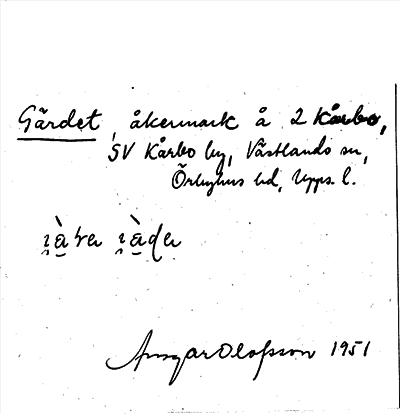 Gärdet, åkermark å 2 Kårbo,
SV Kårbo by, Västlands sn,
Örbyhus hd, Upps. l.
Ansgar Olofsson 1951